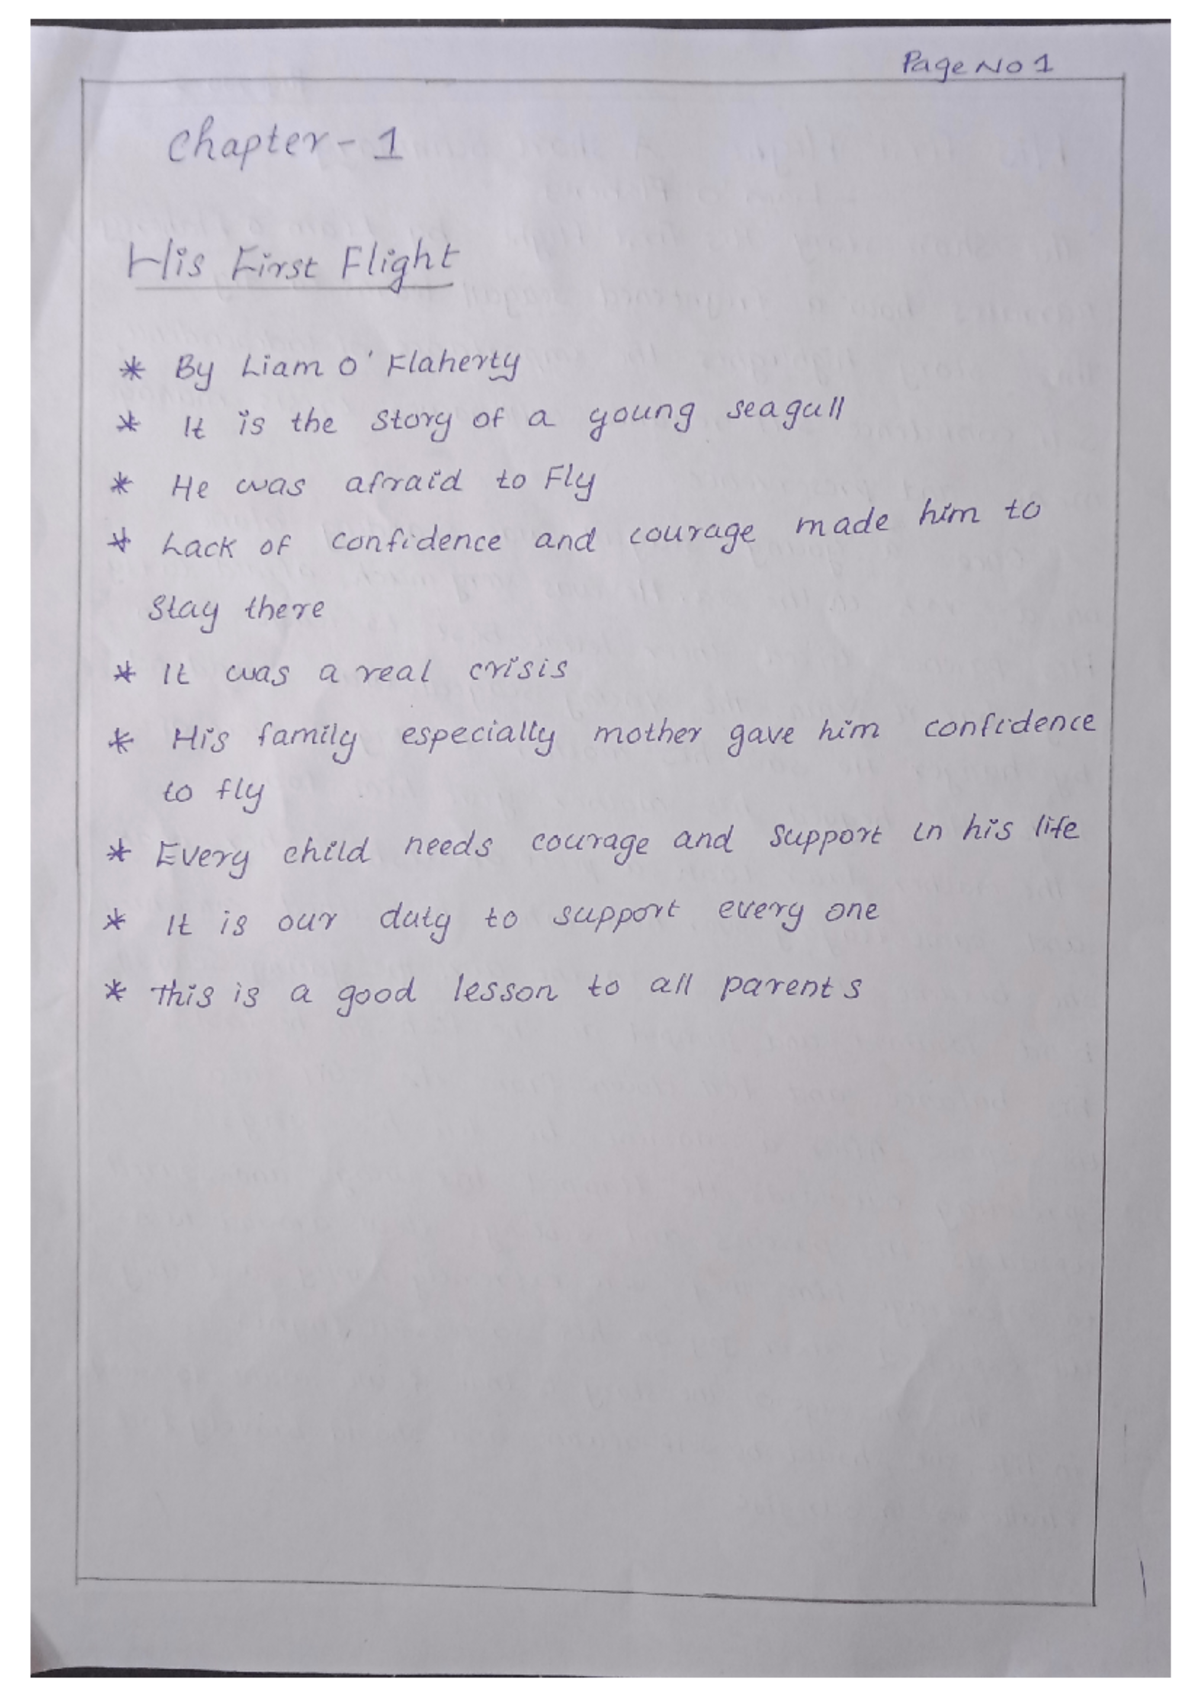 Page No 1
Chapter - 1
His First Flight
* By Liam O' Flaherty
* It is the story of a young seagull
* He was afraid to Fly
* Lack of confidence and courage made him to
stay there
* It was a real crisis
* His family especially mother gave him confidence
to fly
* Every child needs courage and support in his life
* It is our duty to support every one
* This is a good lesson to all parents